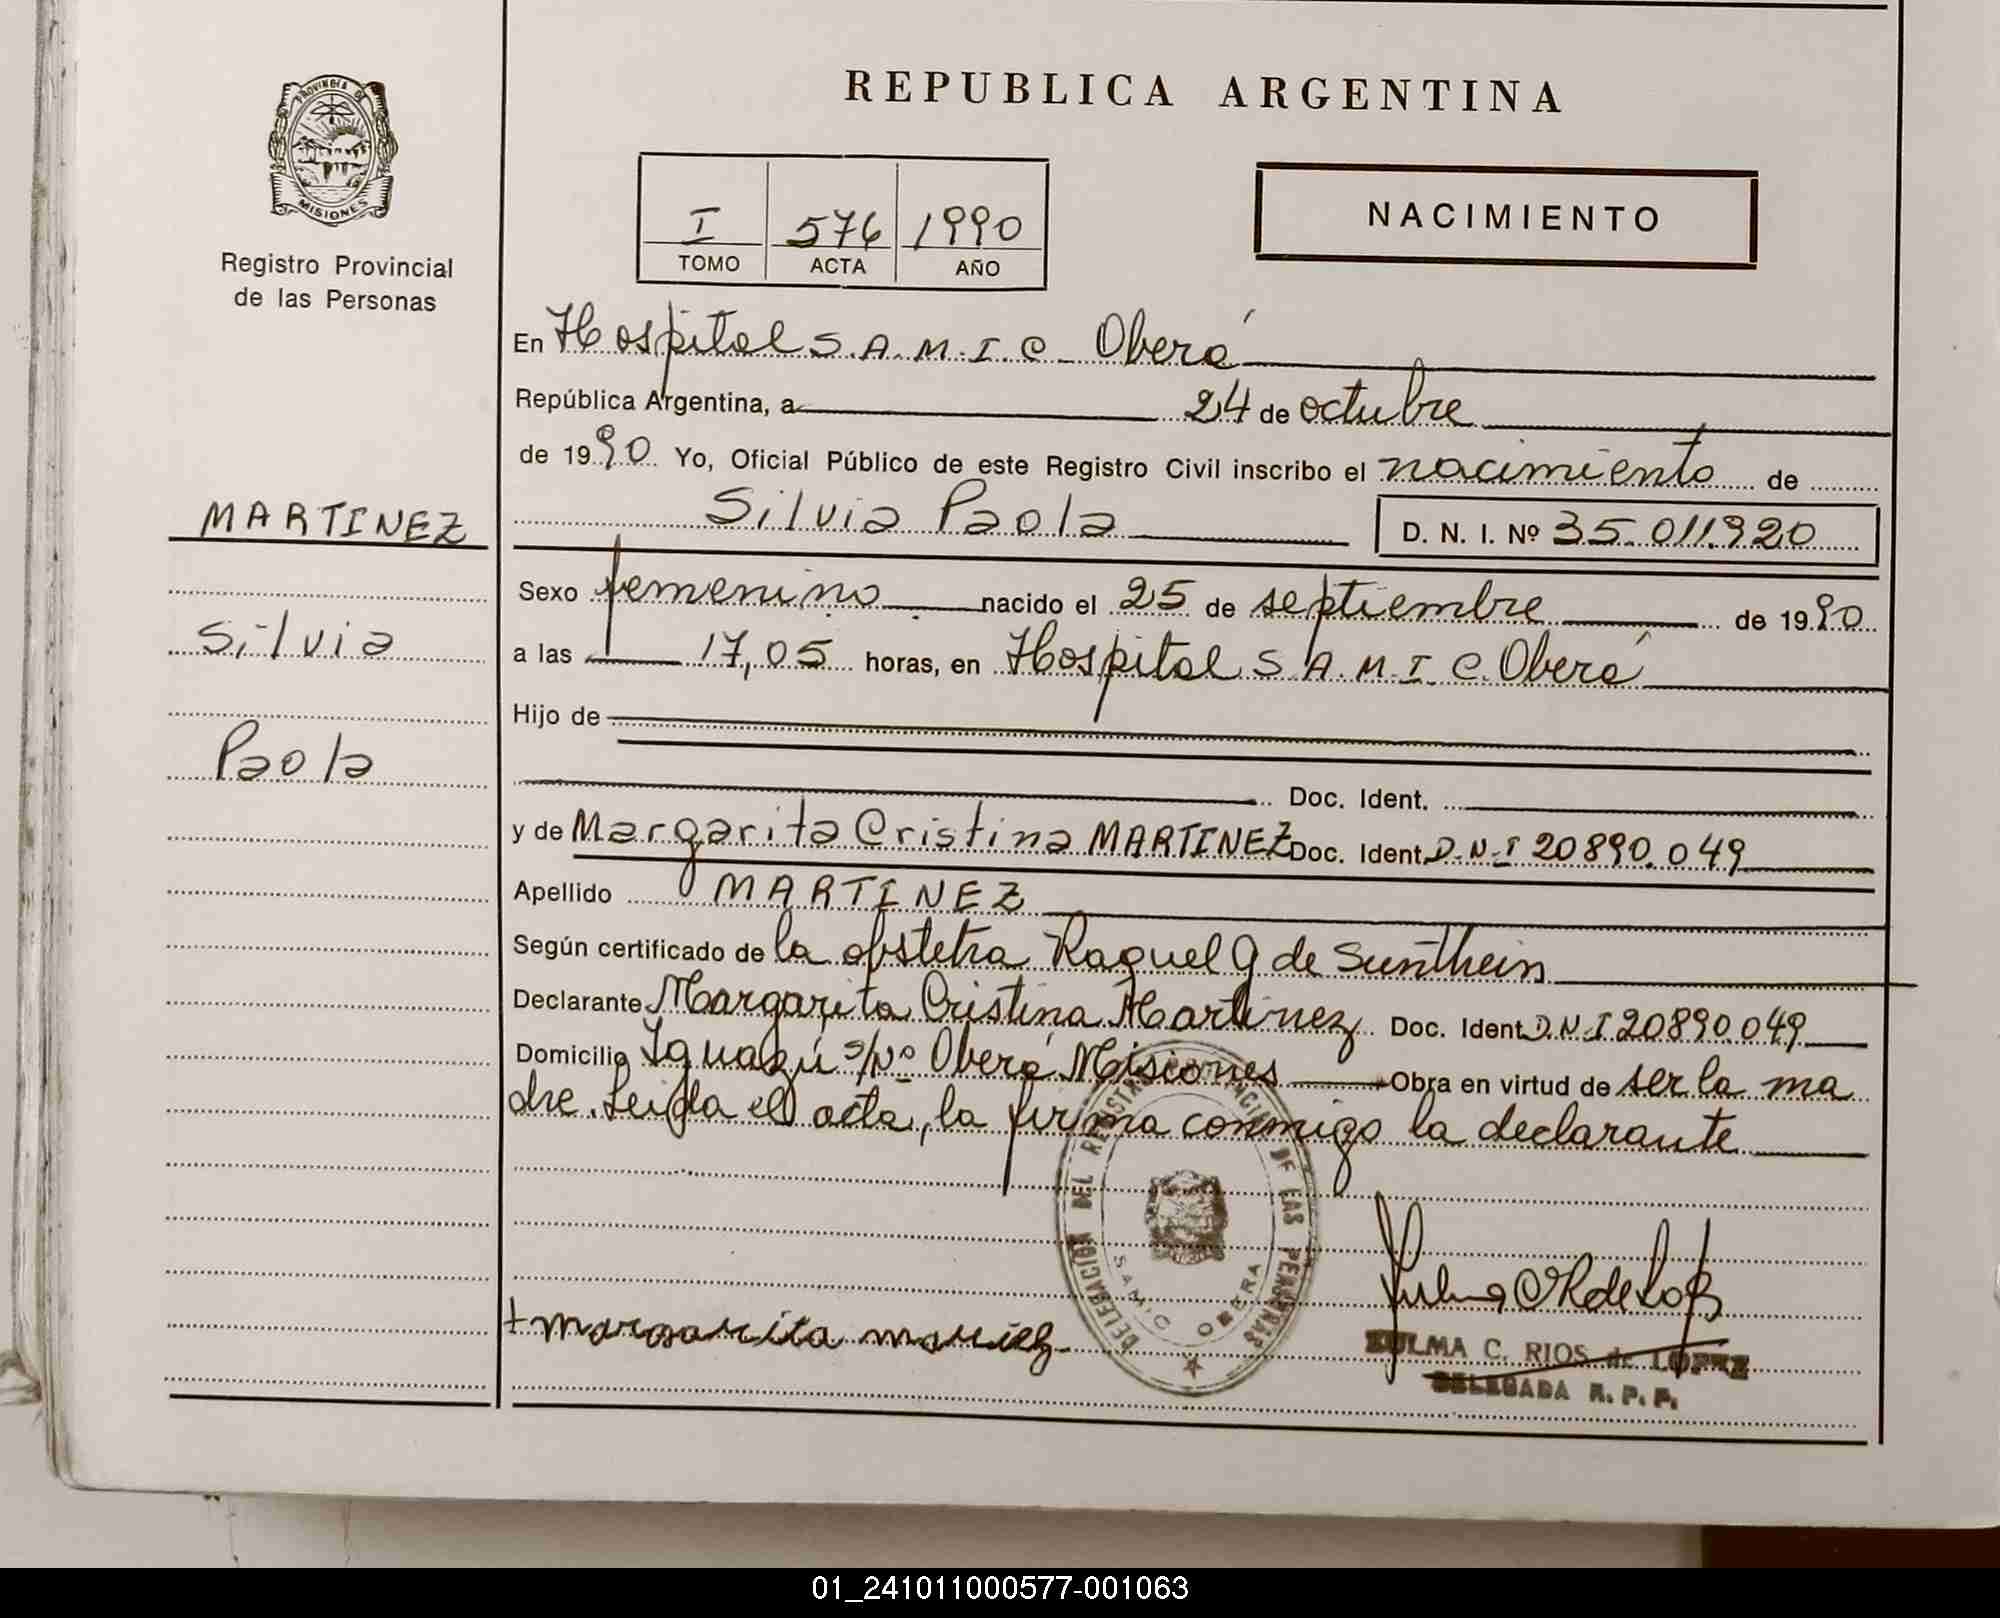 REPUBLICA ARGENTINA
PROVINCIA DE
MISIONES
Registro Provincial
de las Personas
I 576 1990
TOMO ACTA AÑO
NACIMIENTO
En Hospital S.A.M.I.C. Oberá
República Argentina, a 24 de octubre
de 1990 Yo, Oficial Público de este Registro Civil inscribo el nacimiento de
MARTINEZ
Silvia Paola D. N. I. Nº 35.011.920
Sexo femenino nacido el 25 de septiembre de 1990
Silvia
a las 17,05 horas, en Hospital S.A.M.I.C. Oberá
Hijo de
Paola
Doc. Ident.
y de Margarita Cristina MARTINEZ Doc. Ident. D.N.I 20890.049
Apellido MARTINEZ
Según certificado de la obstetra Raquel G de
Declarante Margarita Cristina Martinez Doc. Ident. D.N.I. 20890.049
Domicilio Iguazú s/Nº Oberá Misiones Obra en virtud de ser la ma
dre. Leida el acta, la firma conmigo la declarante
DELEGACION DEL REGISTRO PROVINCIAL DE LAS PERSONAS
SAMIC OBERA
margarita
ZULMA C. RIOS de LOPEZ
DELEGADA R. P. P.
01_241011000577-001063